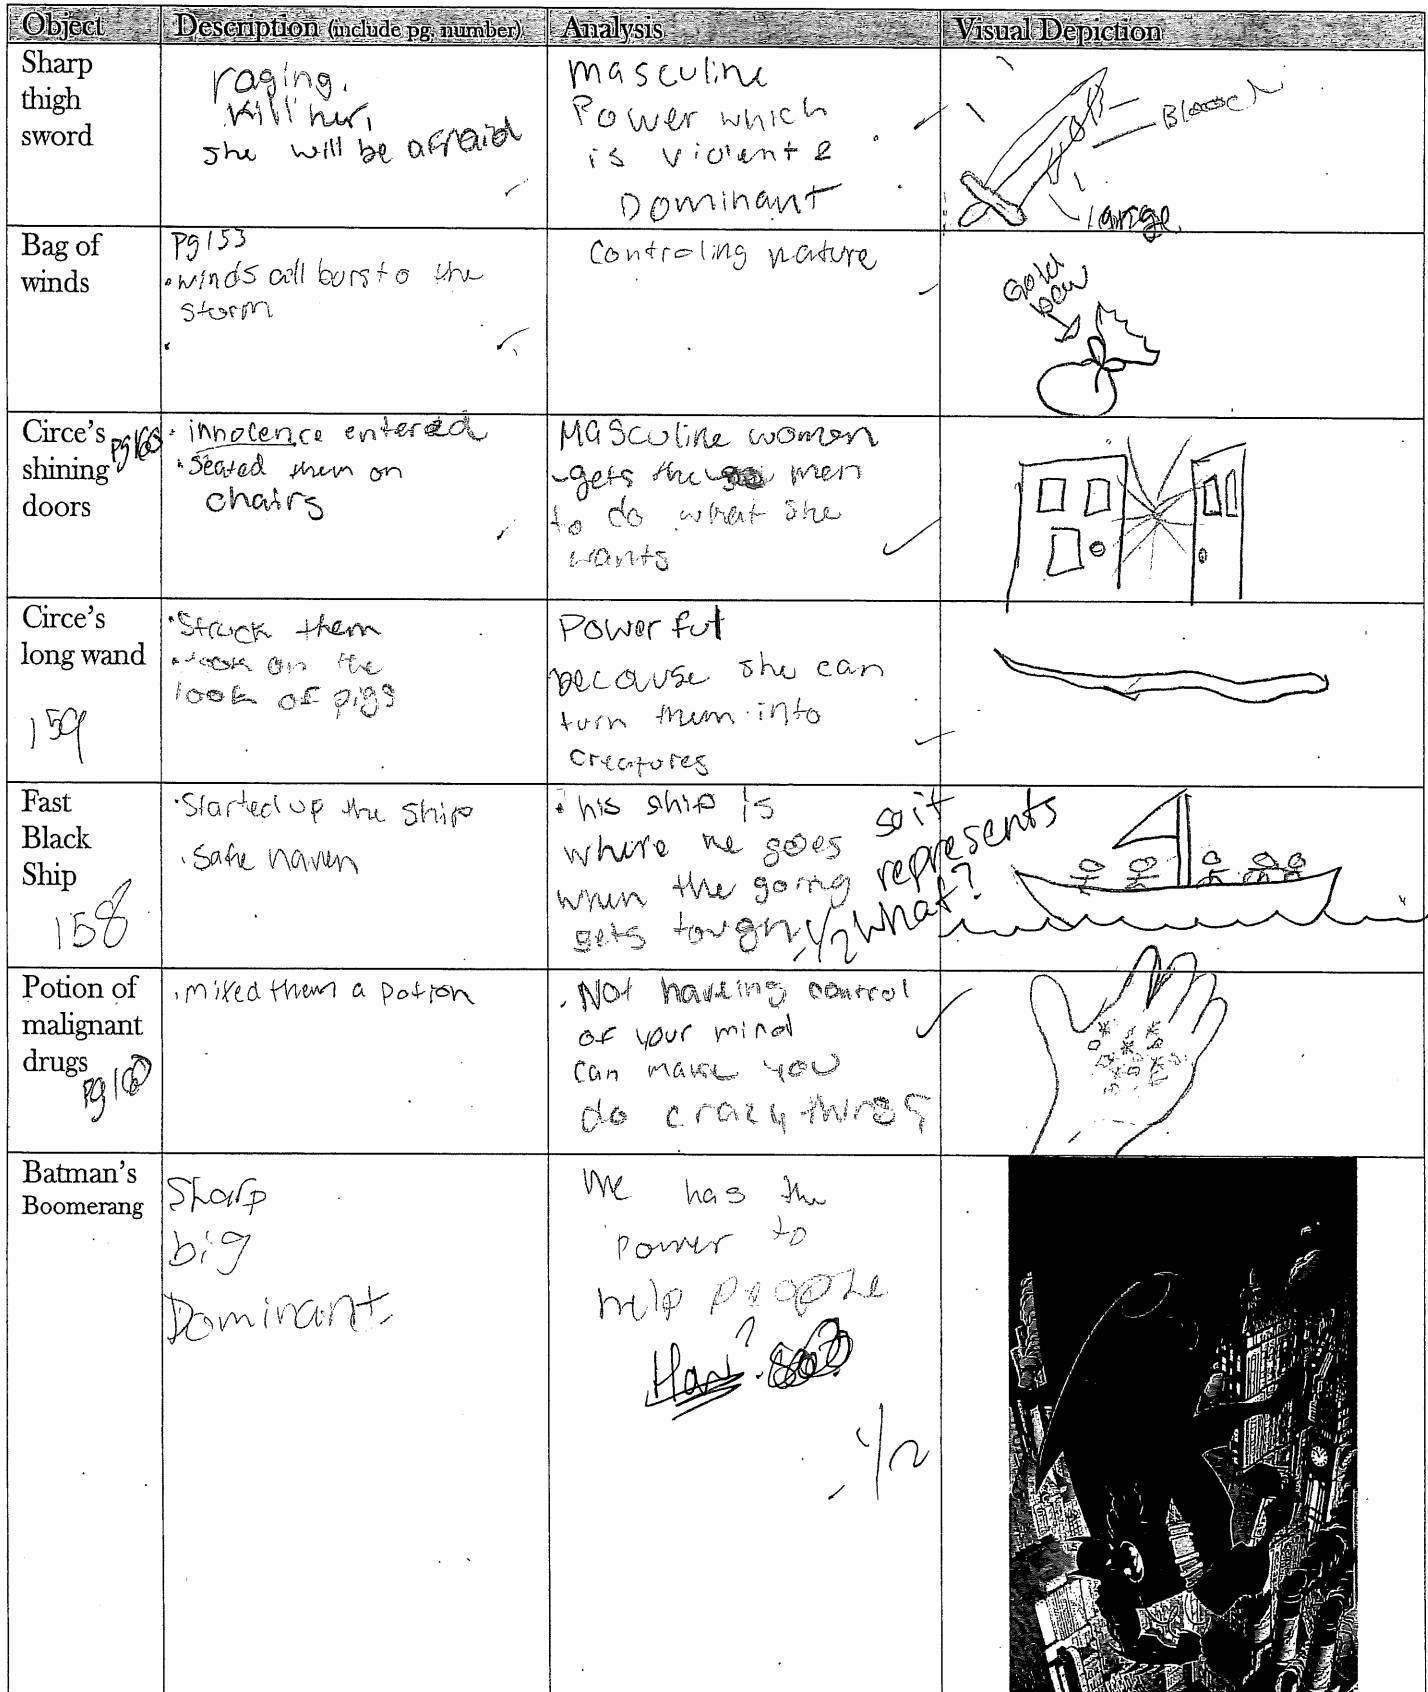 Object Description (include pg. number) Analysis Visual Depiction
Sharp
thigh
sword
raging,
Kill her,
she will be afraid
masculine
Power which
is violent &
Dominant
Blood
large
Bag of
winds
Pg 153
•winds all burst o the
storm
Controling nature
Gold
Circe's
shining
doors
• innocence entered
•Seated them on
chairs
MASculine women
-gets the men
to do what she
wants
Circe's
long wand
159
•Struck them
•took on the
look of pigs
Powerful
because she can
turn them into
creatures
Fast
Black
Ship
158
•Started up the ship
•safe haven
• his ship is
where he goes
when the going
gets tough
so it
represents
what?
-1/2
Potion of
malignant
drugs
•mixed them a potion
•Not haveing control
of your mind
can make you
do crazy things
Batman's
Boomerang
Sharp
big
Dominant
He has the
power to
help people
How?
-1/2